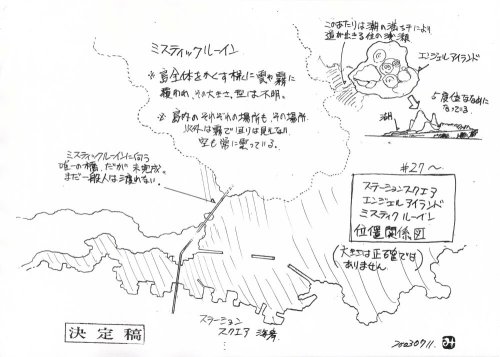 このあたりは潮の満ち干により
道が出きる位の浅瀬
ミスティックルーイン
エンジェルアイランド
※ 島全体をかくす様に雲や霧に
覆われ、その大きさ、型は不明。
5度位ななめに
なっている
海面
※ 島内のそれぞれの場所も、その場所
以外は霧で周りは見えない
空も常に曇っている。
ミスティックルーインに向う
唯一の橋。だが未完成。
まだ一般人は渡れない。
#27〜
ステーションスクエア
エンジェルアイランド
ミスティックルーイン
位置関係図
(大きさは正確では
ありません)
ステーション
スクエア 海岸
決定稿
20030711.